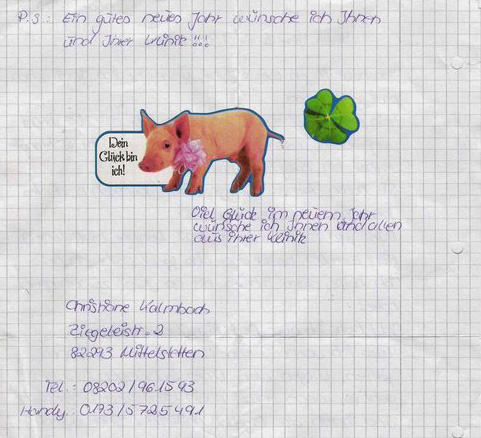 P.S.: Ein gutes neues Jahr wünsche ich Ihnen
und Ihrer Klinik!!!
Dein
Glück bin
ich!
Viel Glück im neuem Jahr
wünsche ich Ihnen und allen
aus ihrer Klinik
Christiane Kalmbach
Ziegeleistr. 2
82293 Mittelstetten
Tel.: 08202/961593
Handy: 0173/5725491